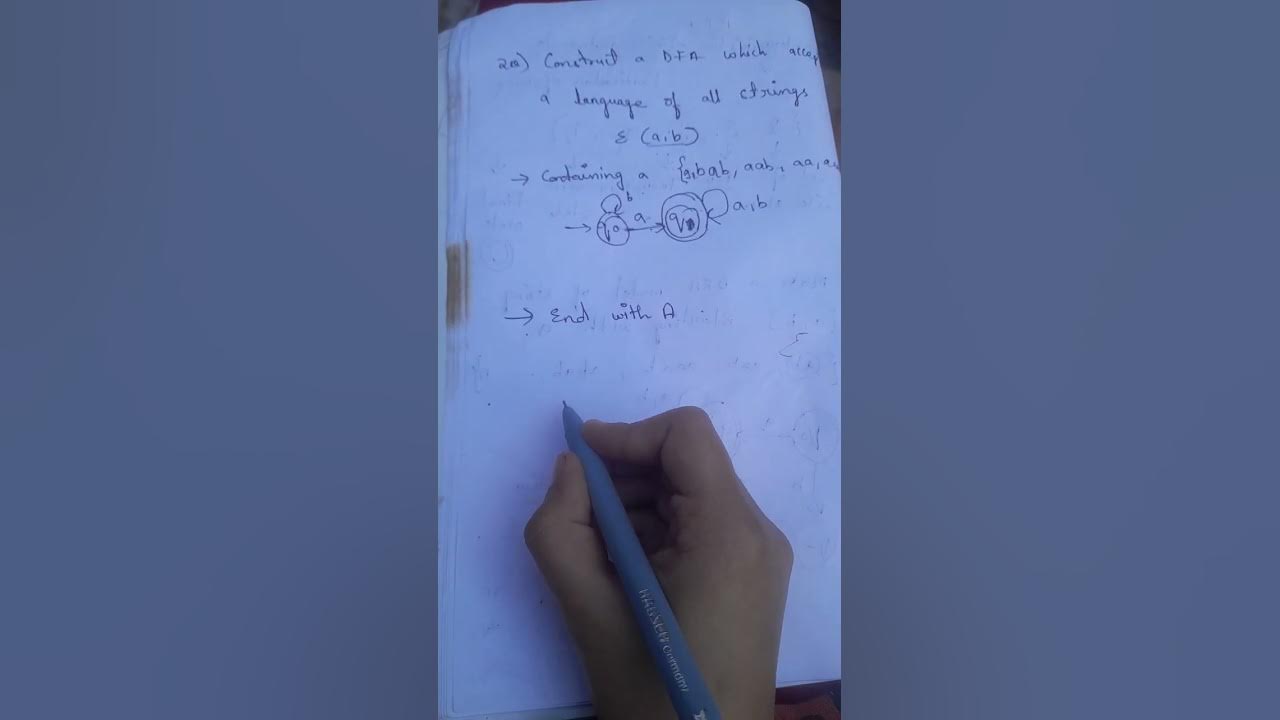 2a) Construct a DFA which accep
a language of all strings
ε (a,b)
→ Containing a {a, bab, aab, aa, a
b
→ q0 a q1 a,b
→ End with A
HAUSER Germany